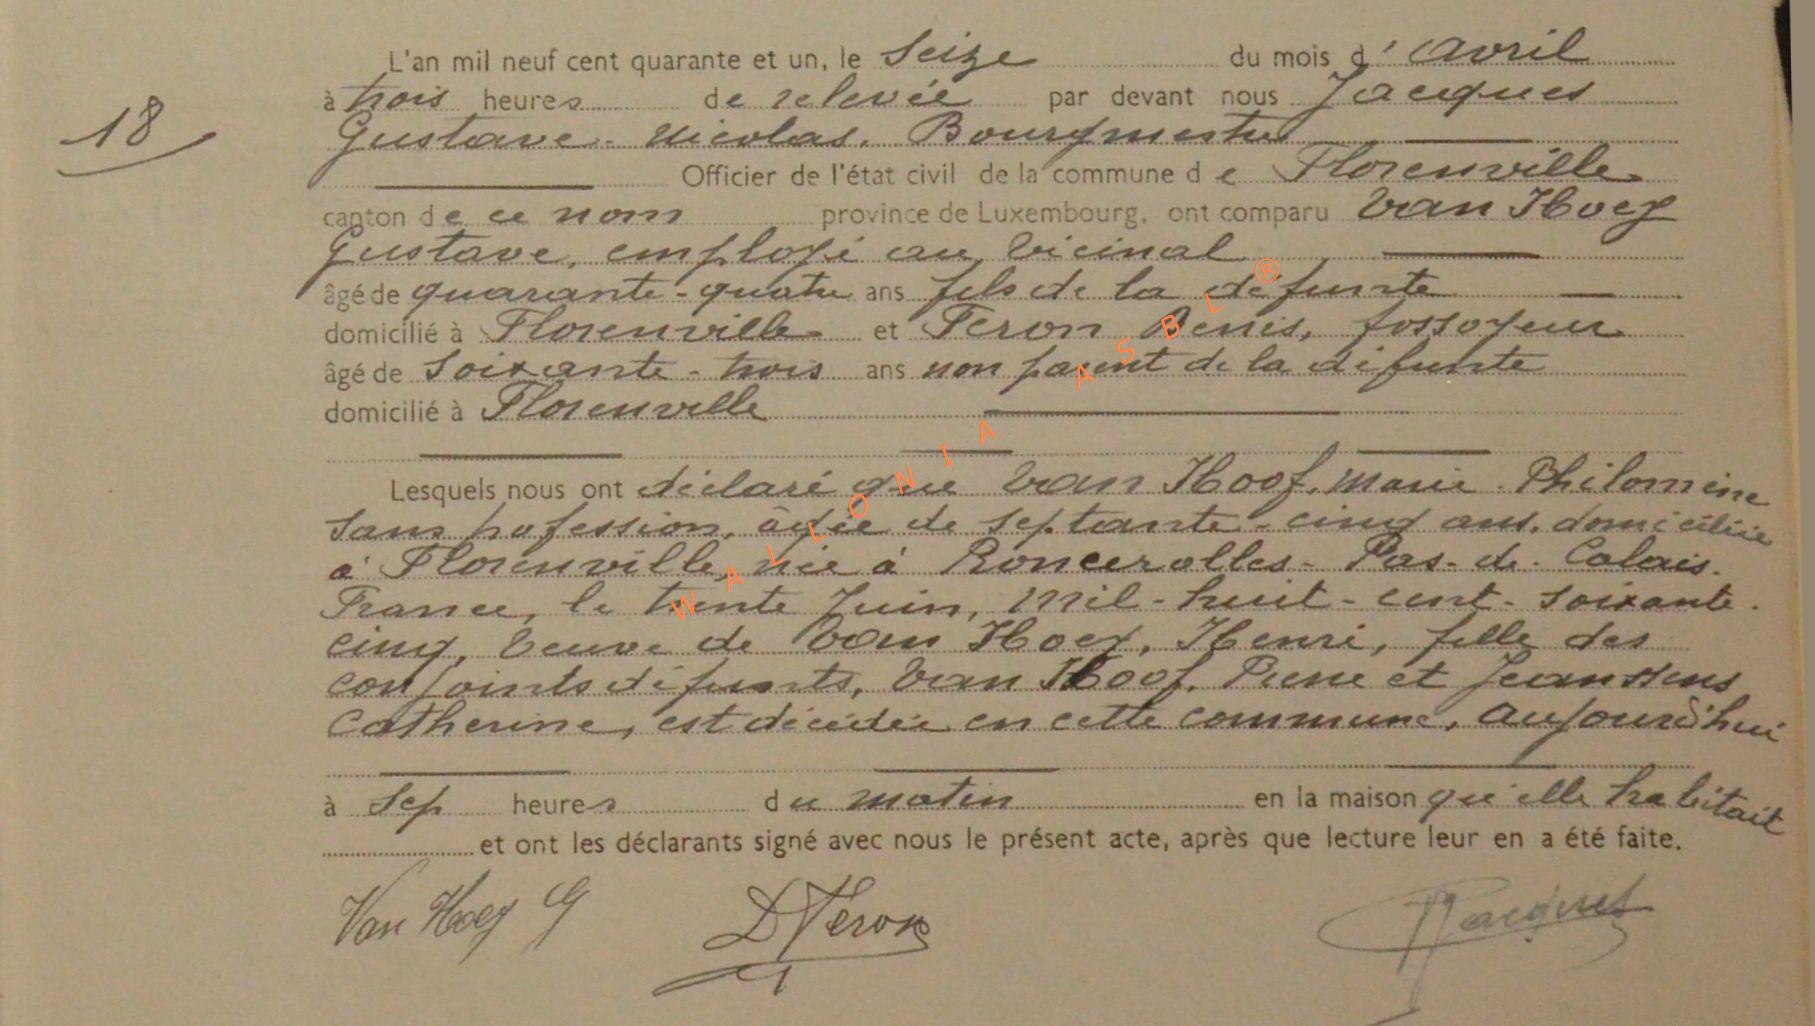 L'an mil neuf cent quarante et un, le Seize du mois d' Avril
18
à trois heures de relevée par devant nous Jacques
Gustave. Nicolas. Bourgmestre
Officier de l'état civil de la commune de Florenville
canton de ce nom province de Luxembourg, ont comparu Van Hoey
Gustave, employé au Vicinal
âgé de quarante-quatre ans fils de la défunte
domicilié à Florenville et Feron Denis, fossoyeur
âgé de Soixante-trois ans non parent de la défunte
domicilié à Florenville
Lesquels nous ont déclaré que Van Hoof, Marie. Philomène
sans profession, âgée de septante-cinq ans, domiciliée
à Florenville, née à Roncerolles. Pas-de-Calais.
France, le trente Juin, mil-huit-cent-soixante-
cinq, Veuve de Van Hoey, Henri, fille des
conjoints défunts, Van Hoof, Pierre et Jeanssens
Catherine, est décédée en cette commune, aujourd'hui
à Sep heures du matin en la maison qu'elle habitait
et ont les déclarants signé avec nous le présent acte, après que lecture leur en a été faite.
Van Hoey G D Feron Jacques
WALLONIA ASBL ®